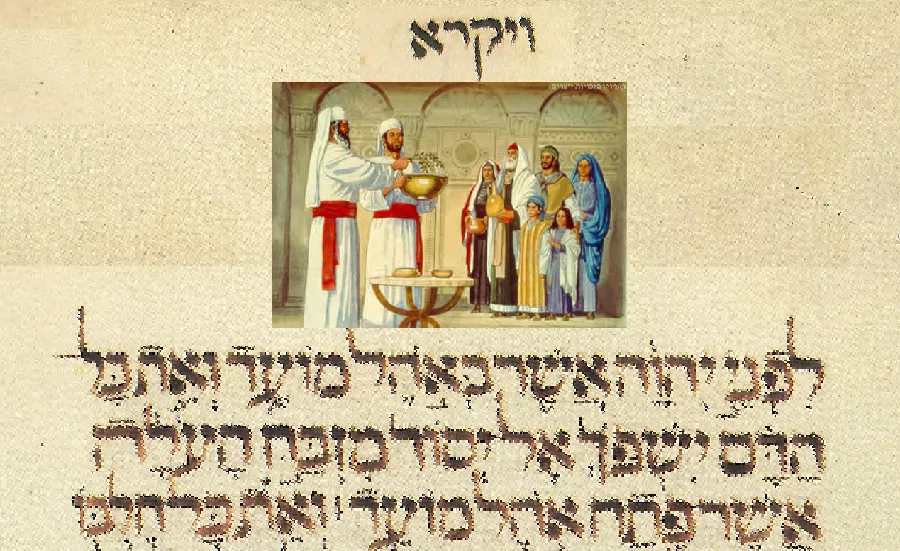 ויקרא
לִפְנֵי יְהוָה אֲשֶׁר בְּאֹהֶל מוֹעֵד וְאֵת כָּל
הַדָּם יִשְׁפֹּךְ אֶל יְסוֹד מִזְבַּח הָעֹלָה
אֲשֶׁר פֶּתַח אֹהֶל מוֹעֵד׃ וְאֵת כָּל חלבו